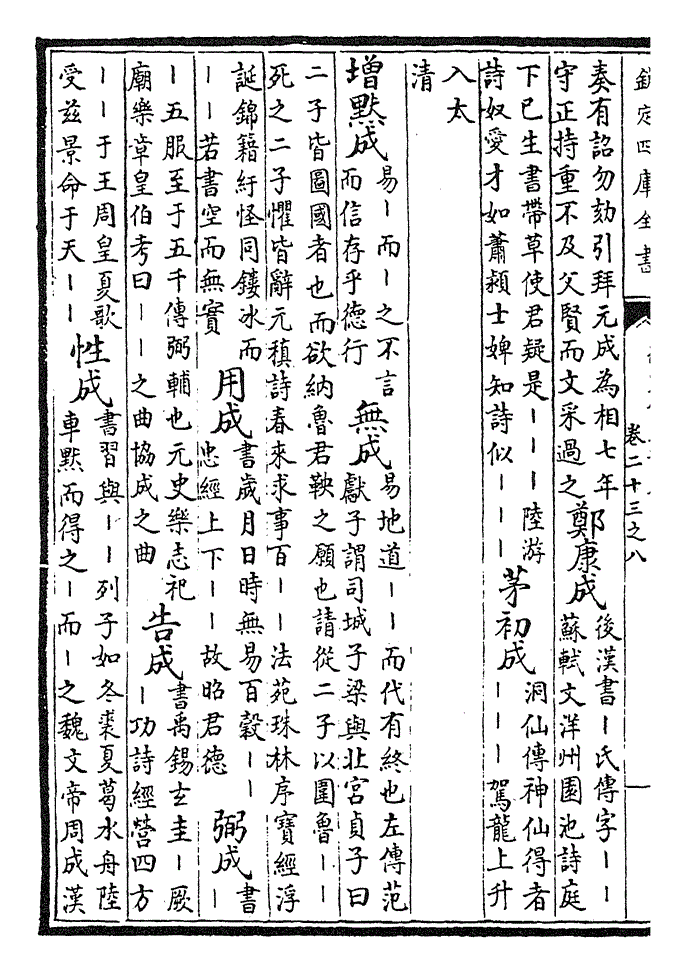 欽定四庫全書
卷二十三之八
一
奏有詔勿劾引拜元成為相七年
守正持重不及父賢而文采過之
鄭康成
後漢書ー氏傳字ーー
蘇軾文洋州園池詩庭
下已生書帶草使君疑是ーーー陸游
詩奴愛才如蕭潁士婢知詩似ーーー
茅初成
洞仙傳神仙得者
ーーー駕龍上升
入太
清
增默成
易ー而ー之不言
而信存乎德行
無成
易地道ーー而代有終也左傳范
獻子謂司城子梁與北宮貞子曰
二子皆圖國者也而欲納魯君鞅之願也請從二子以圍魯ーー
死之二子懼皆辭元稹詩春來求事百ーー法苑珠林序寶經浮
誕錦籍紆怪同鏤冰而
ーー若書空而無實
用成
書歲月日時無易百穀ーー
忠經上下ーーー故昭君德
弼成
書
ー
ー五服至于五千傳弼輔也元史樂志祀
廟樂章皇伯考曰ーー之曲協成之曲
告成
書禹錫玄圭ー厥
ー功詩經營四方
ーー于王周皇夏歌
受兹景命于天ーー
性成
書習與ーー列子如冬裘夏葛水舟陸
車默而得之ー而ー之魏文帝周成漢